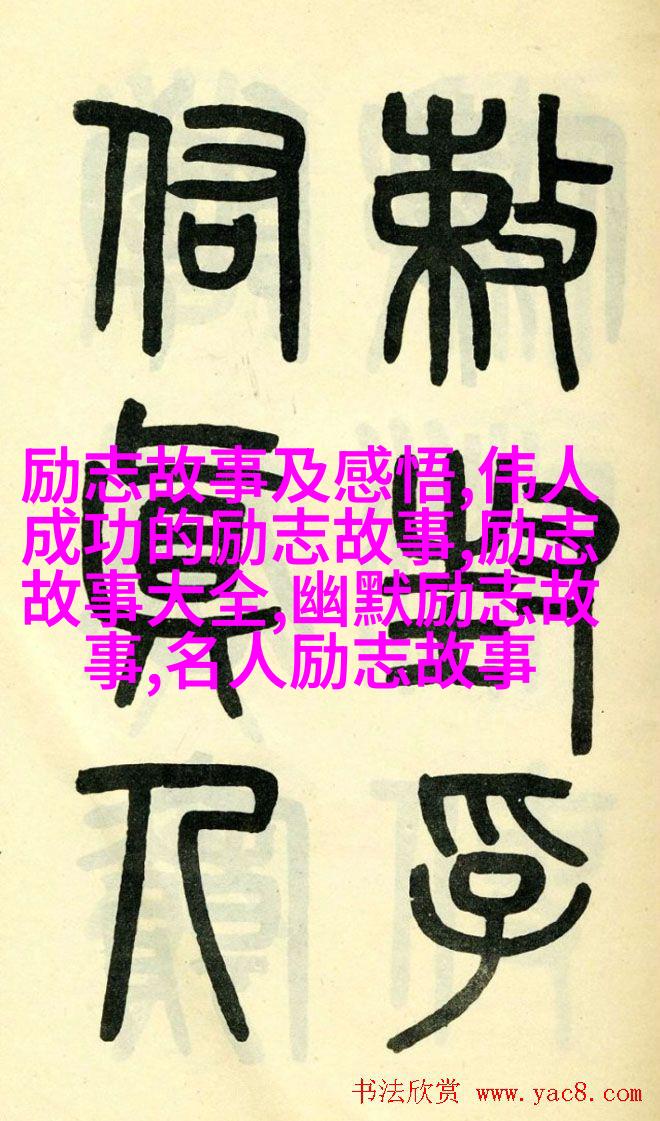 敕封孚
佑真人
励志故事及感悟,伟人
成功的励志故事,励志
故事大全,幽默励志故
事,名人励志故事
书法欣赏 www.yac8.com